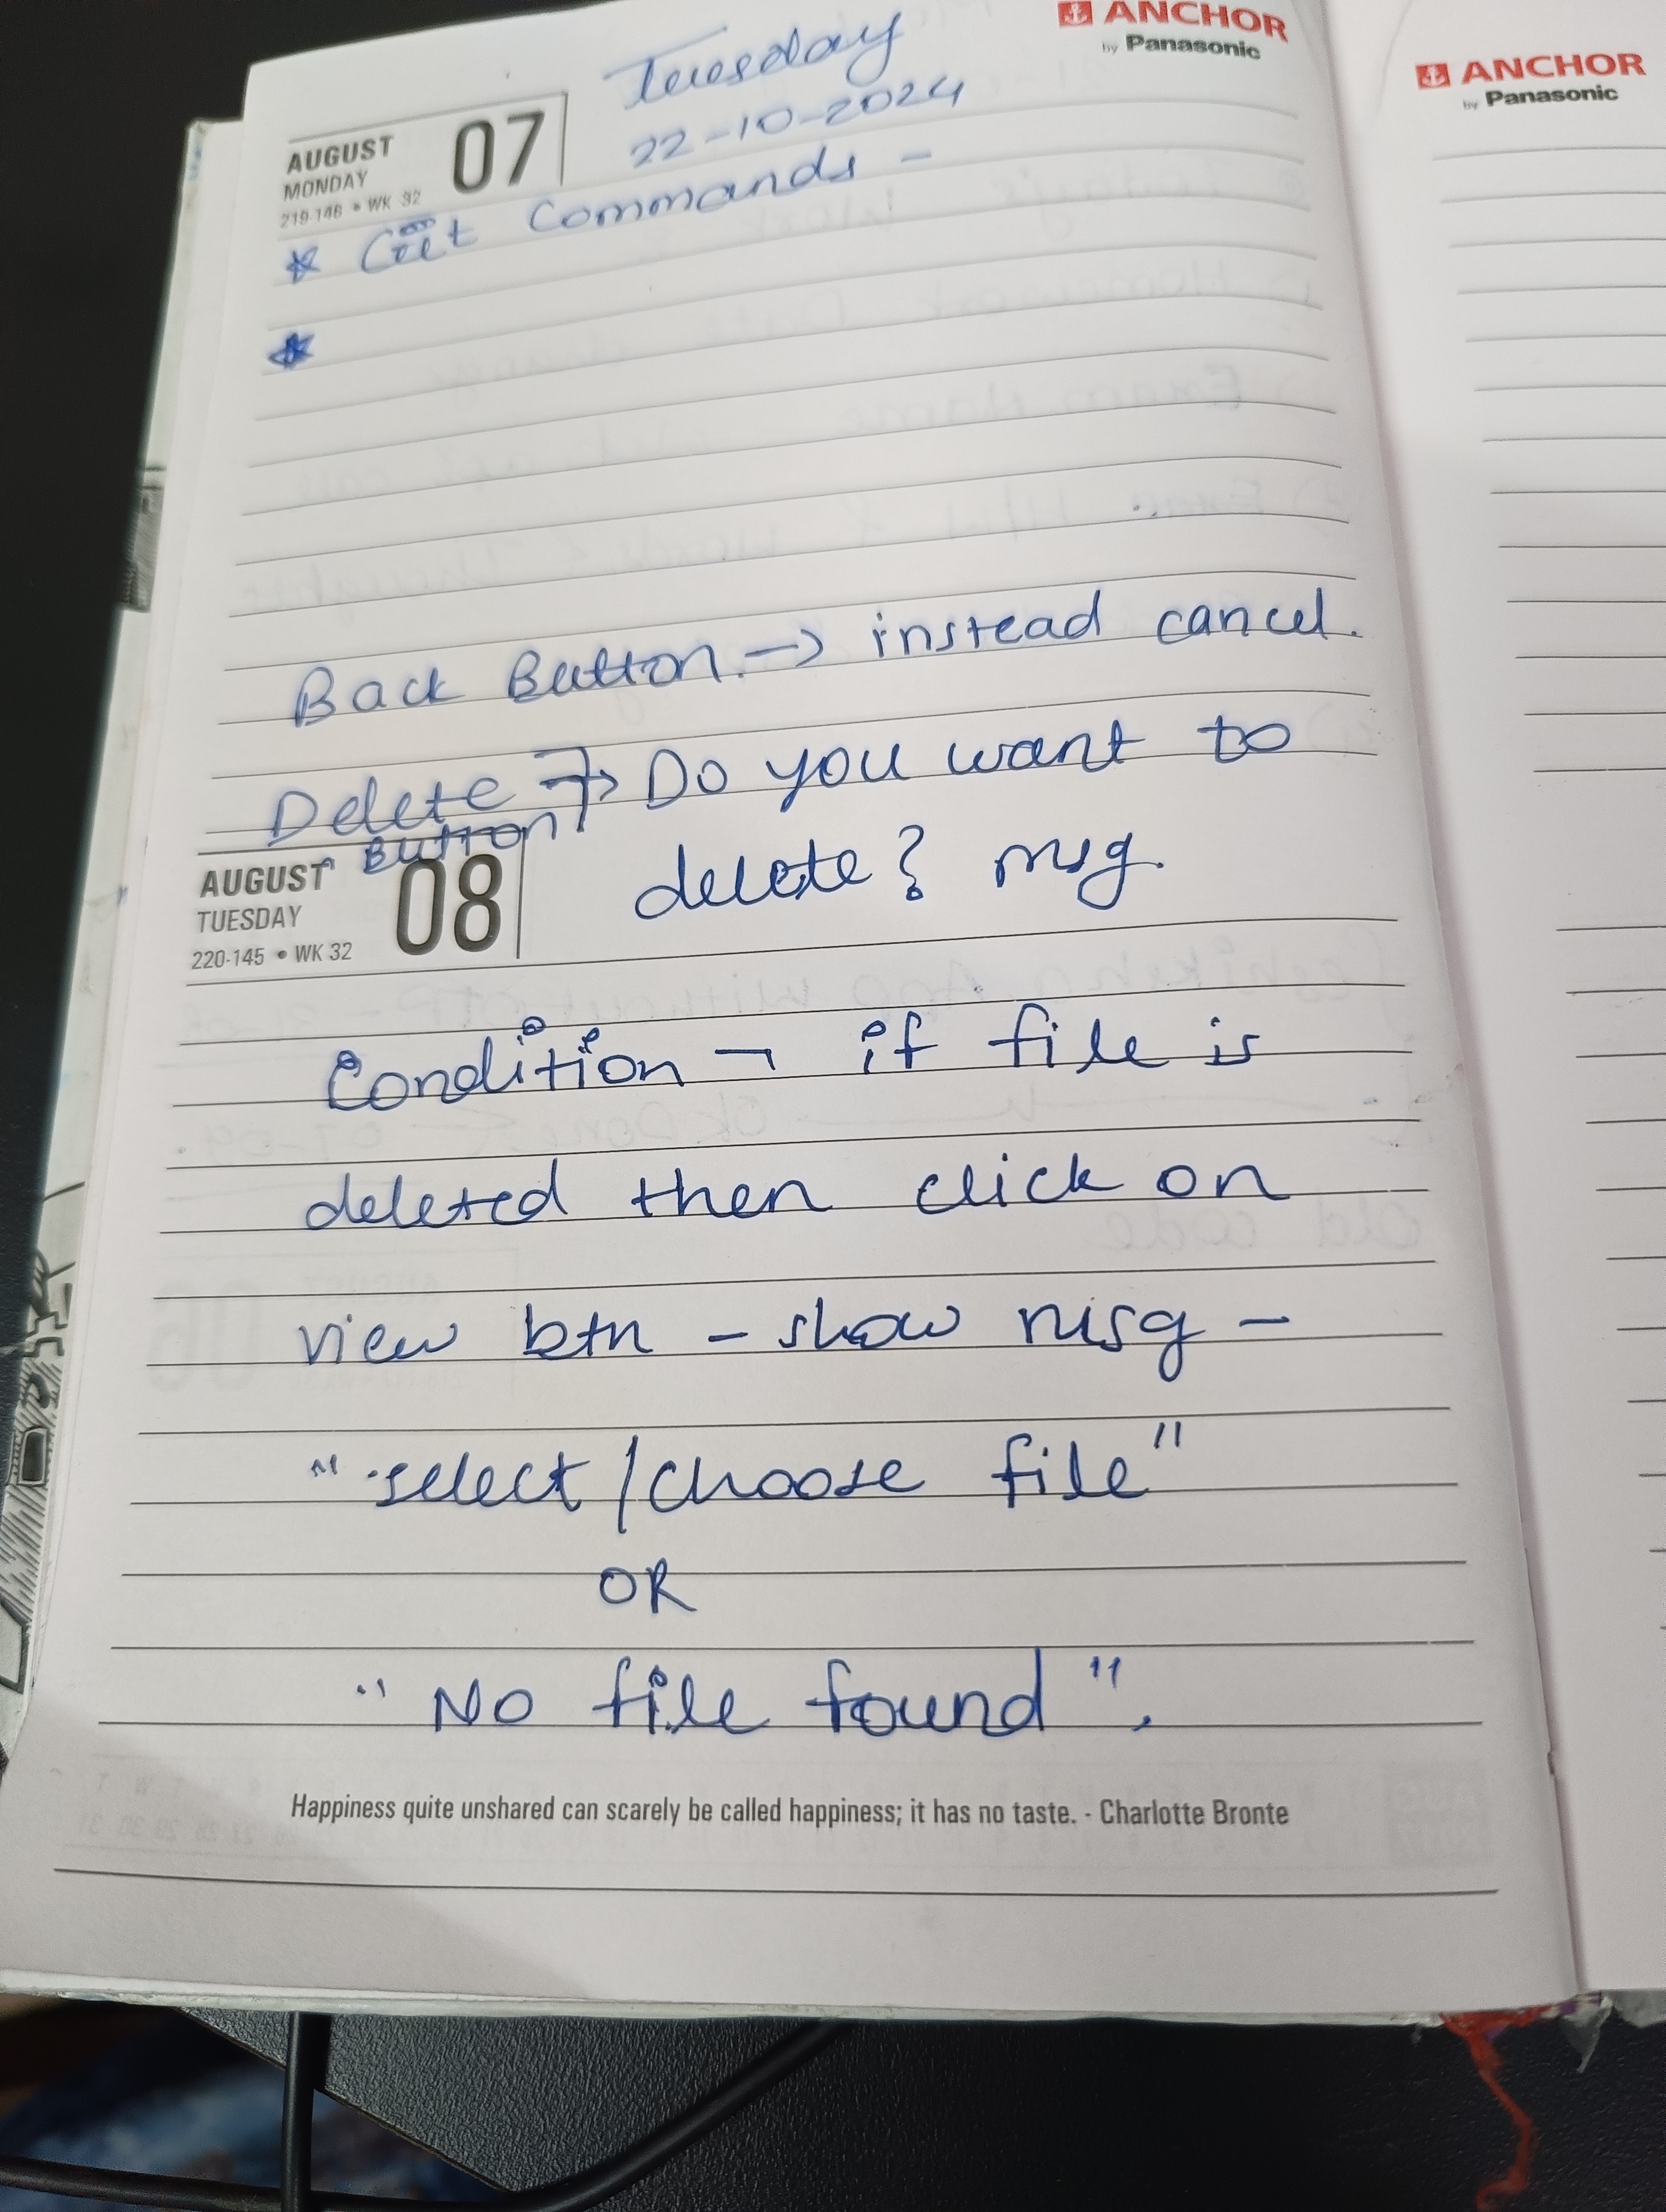 ANCHOR
by Panasonic
ANCHOR
by Panasonic
Tuesday
22-10-2024
AUGUST 07
MONDAY
219-146 • WK 32
* Git Commands -
*
Back Button → instead cancel.
Delete Button → Do you want to
delete? msg.
AUGUST 08
TUESDAY
220-145 • WK 32
Condition → if file is
deleted then click on
view btn - show msg -
"select/choose file"
OR
"No file found".
Happiness quite unshared can scarely be called happiness; it has no taste. - Charlotte Bronte